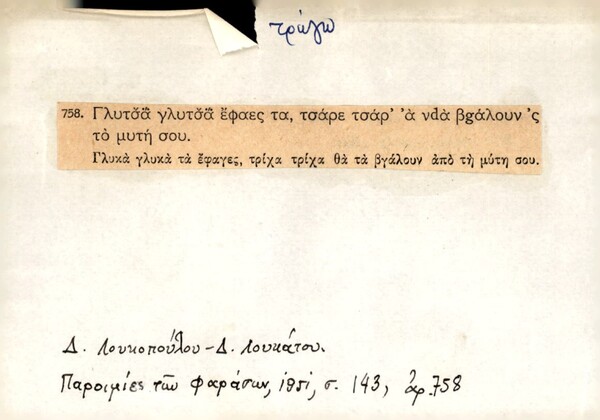 τρώγω
758. Γλυτσ̌ᾶ̈ γλυτσ̌ᾶ̈ ἔφαες τα, τσάρε τσάρ' 'ὰ νdὰ βgάλουν 'ς
τὸ μυτή σου.
Γλυκὰ γλυκὰ τὰ ἔφαγες, τρίχα τρίχα θὰ τὰ βγάλουν ἀπὸ τὴ μύτη σου.
Δ. Λουκοπούλου - Δ. Λουκάτου.
Παροιμίες τῶν Φαράσων, 1951, σ. 143, ἀρ. 758